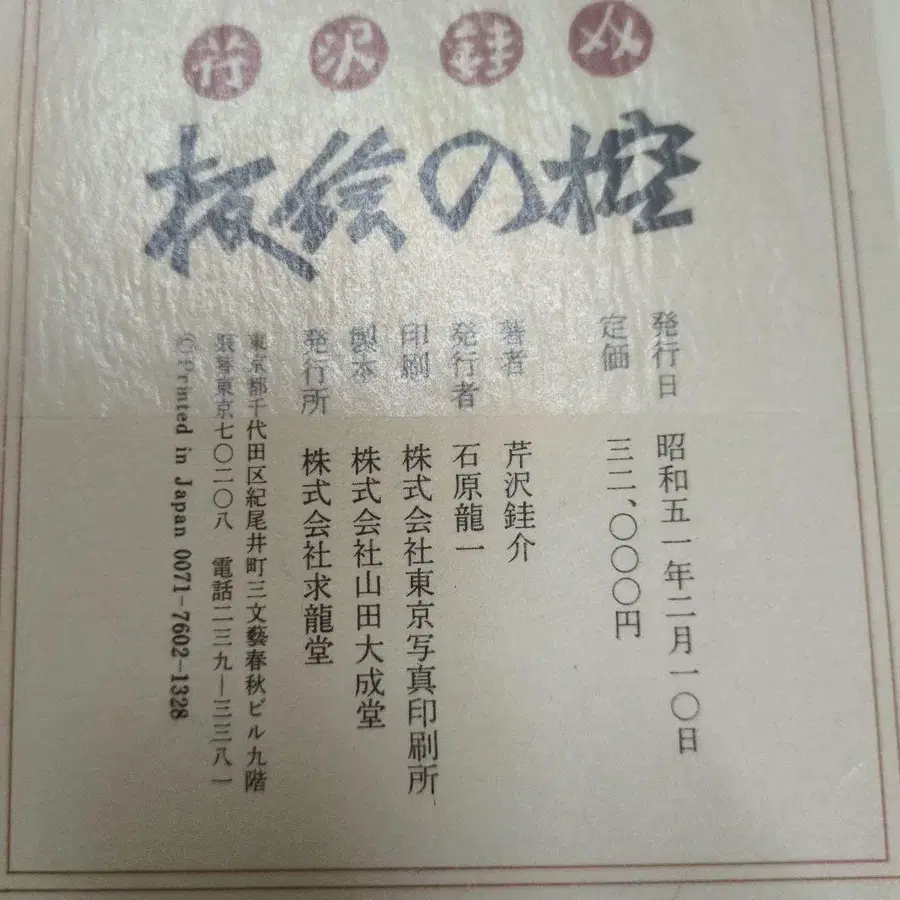 芹沢銈介
板絵の
発行日 昭和五一年二月一〇日
定価 三二、〇〇〇円
著者 芹沢銈介
発行者 石原龍一
印刷 株式会社東京写真印刷所
製本 株式会社山田大成堂
発行所 株式会社求龍堂
東京都千代田区紀尾井町三文藝春秋ビル九階
振替東京七〇二〇八 電話二三九―三三八一
©Printed in Japan 0071-7602-1328